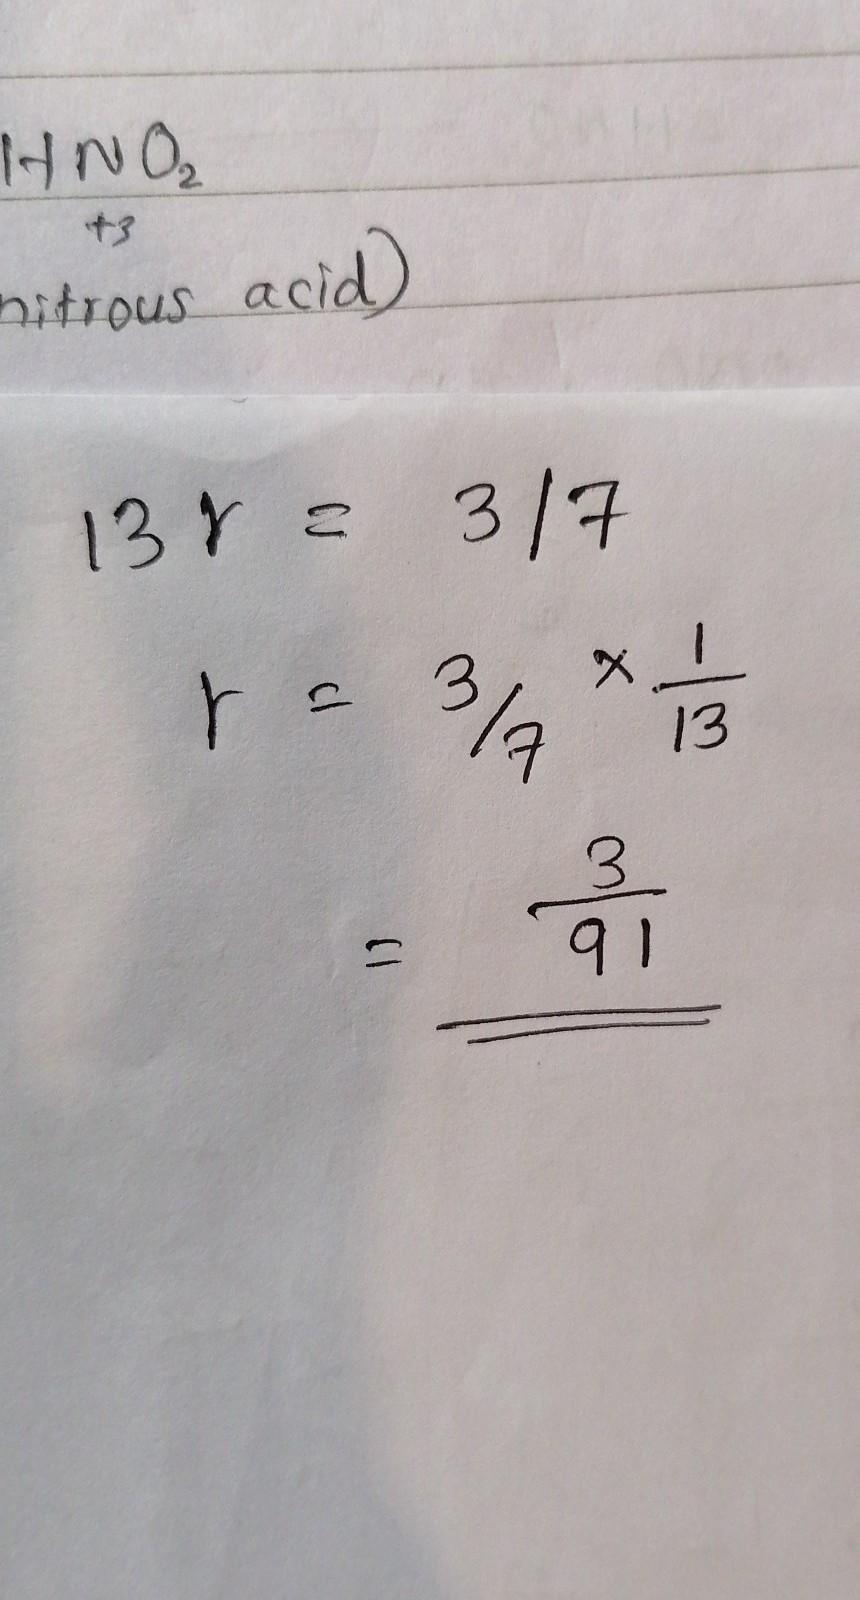 HNO₂
+3
nitrous acid)
13 r = 3/7
r = 3/7 × 1/13
= 3/91